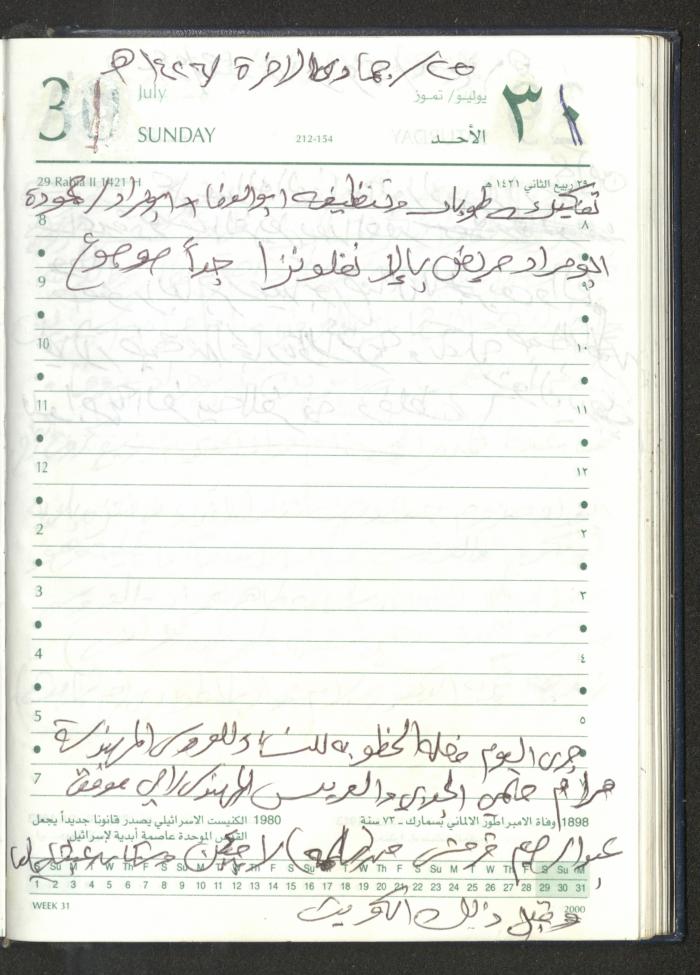 ٢٥/جمادى الآخرة ١٤٢٧ هـ
31 July
يوليو/ تموز ٣١
SUNDAY 212-154 الأحد
29 Rabia II 1421 H ٢٩ ربيع الثاني ١٤٢١ هـ
تفكيك طوبار وتنظيفه ابو الوفا + ابو مراد / حمودة
8 ٨
ابو مراد مريض بالانفلونزا جداً موجوع
9 ٩
10 ١٠
11 ١١
12 ١٢
2 ٢
3 ٣
4 ٤
5 ٥
جرى اليوم حفلة الخطوبة للنساء للعروس المهندسة
7
مرام حلمي والعريس المهندس رامي موفق
1898 وفاة الامبراطور الالماني بسمارك - ٧٣ سنة
1980 الكنيست الاسرائيلي يصدر قانونا جديداً يجعل
القدس الموحدة عاصمة أبدية لإسرائيل
عبد الرحيم
S Su M T W Th F S Su M T W Th F S Su M T W Th F S Su M
1 2 3 4 5 6 7 8 9 10 11 12 13 14 15 16 17 18 19 20 21 22 23 24 25 26 27 28 29 30 31
WEEK 31 2000
وقبل ذلك الكويت